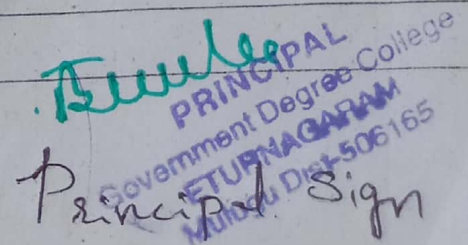 PRINCIPAL
Government Degree College
ETURNAGARAM
Mulugu Dist-506165
Principal Sign